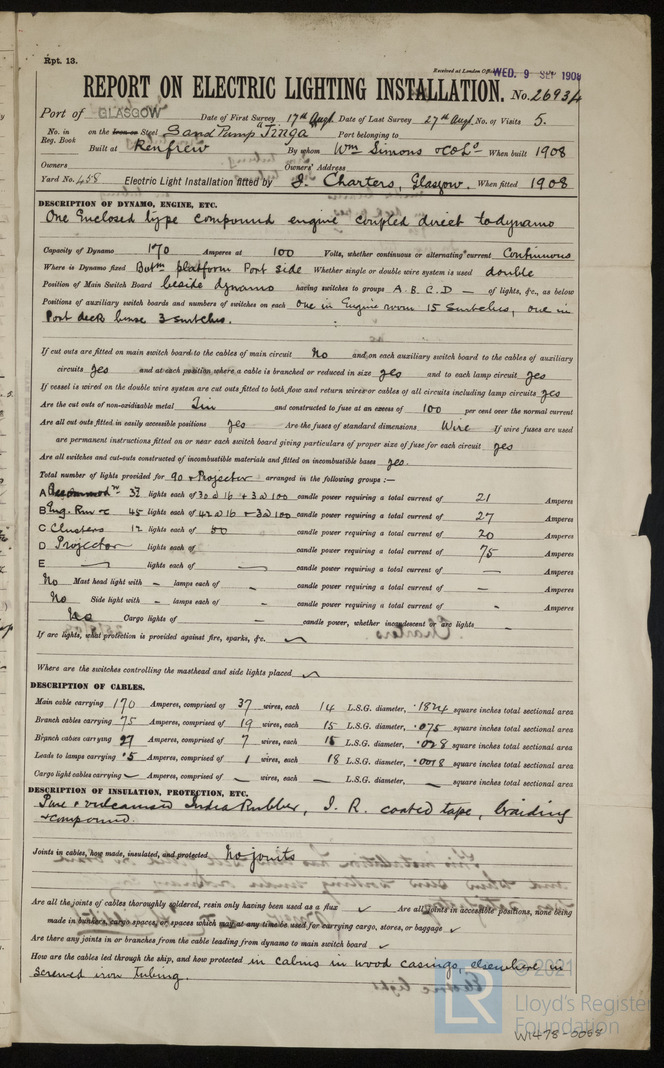 Rpt. 13.
Received at London Office WED. 9 SEP 1908
REPORT ON ELECTRIC LIGHTING INSTALLATION. No. 26934
Port of GLASGOW Date of First Survey 17th Augt Date of Last Survey 27th Augt No. of Visits 5.
No. in Reg. Book on the Iron or Steel Sand Pump "Jinga" Port belonging to
Built at Renfrew By whom Wm Simons & Co Lo When built 1908
Owners Owners' Address
Yard No. 458 Electric Light Installation fitted by J. Charters, Glasgow. When fitted 1908
DESCRIPTION OF DYNAMO, ENGINE, ETC.
One Enclosed type compound engine coupled direct to dynamo
Capacity of Dynamo 170 Amperes at 100 Volts, whether continuous or alternating current Continuous
Where is Dynamo fixed Botm platform Port side Whether single or double wire system is used double
Position of Main Switch Board beside dynamo having switches to groups A. B. C. D — of lights, &c., as below
Positions of auxiliary switch boards and numbers of switches on each one in Engine room 15 switches, one in
Port deck house 3 switches.
If cut outs are fitted on main switch board to the cables of main circuit No and on each auxiliary switch board to the cables of auxiliary
circuits yes and at each position where a cable is branched or reduced in size yes and to each lamp circuit yes
If vessel is wired on the double wire system are cut outs fitted to both flow and return wires or cables of all circuits including lamp circuits yes
Are the cut outs of non-oxidizable metal Tin and constructed to fuse at an excess of 100 per cent over the normal current
Are all cut outs fitted in easily accessible positions yes Are the fuses of standard dimensions Wire If wire fuses are used
are permanent instructions fitted on or near each switch board giving particulars of proper size of fuse for each circuit yes
Are all switches and cut-outs constructed of incombustible materials and fitted on incombustible bases yes.
Total number of lights provided for 90 & Projector arranged in the following groups :—
A Accommodn 33 lights each of 30 @ 16 + 3 @ 100 candle power requiring a total current of 21 Amperes
B Eng. Rm &c 45 lights each of 42 @ 16 + 3 @ 100 candle power requiring a total current of 27 Amperes
C Clusters 12 lights each of 50 candle power requiring a total current of 20 Amperes
D Projector lights each of candle power requiring a total current of 75 Amperes
E — lights each of — candle power requiring a total current of — Amperes
No Mast head light with - lamps each of - candle power requiring a total current of - Amperes
No Side light with - lamps each of - candle power requiring a total current of - Amperes
No Cargo lights of - candle power, whether incandescent or arc lights
If arc lights, what protection is provided against fire, sparks, &c.
Where are the switches controlling the masthead and side lights placed
DESCRIPTION OF CABLES.
Main cable carrying 170 Amperes, comprised of 37 wires, each 14 L.S.G. diameter, .1824 square inches total sectional area
Branch cables carrying 75 Amperes, comprised of 19 wires, each 15 L.S.G. diameter, .075 square inches total sectional area
Branch cables carrying 27 Amperes, comprised of 7 wires, each 15 L.S.G. diameter, .028 square inches total sectional area
Leads to lamps carrying .5 Amperes, comprised of 1 wires, each 18 L.S.G. diameter, .0018 square inches total sectional area
Cargo light cables carrying — Amperes, comprised of — wires, each — L.S.G. diameter, — square inches total sectional area
DESCRIPTION OF INSULATION, PROTECTION, ETC.
Pure & vulcanised India Rubber, I. R. coated tape, braiding
& compound.
Joints in cables, how made, insulated, and protected No joints
Are all the joints of cables thoroughly soldered, resin only having been used as a flux ✓ Are all joints in accessible positions, none being
made in bunkers, cargo spaces, or spaces which may at any time be used for carrying cargo, stores, or baggage ✓
Are there any joints in or branches from the cable leading from dynamo to main switch board ✓
How are the cables led through the ship, and how protected in cabins in wood casings, elsewhere in
screwed iron tubing.
© 2021
LR
Lloyd's Register
Foundation
W1478-0068